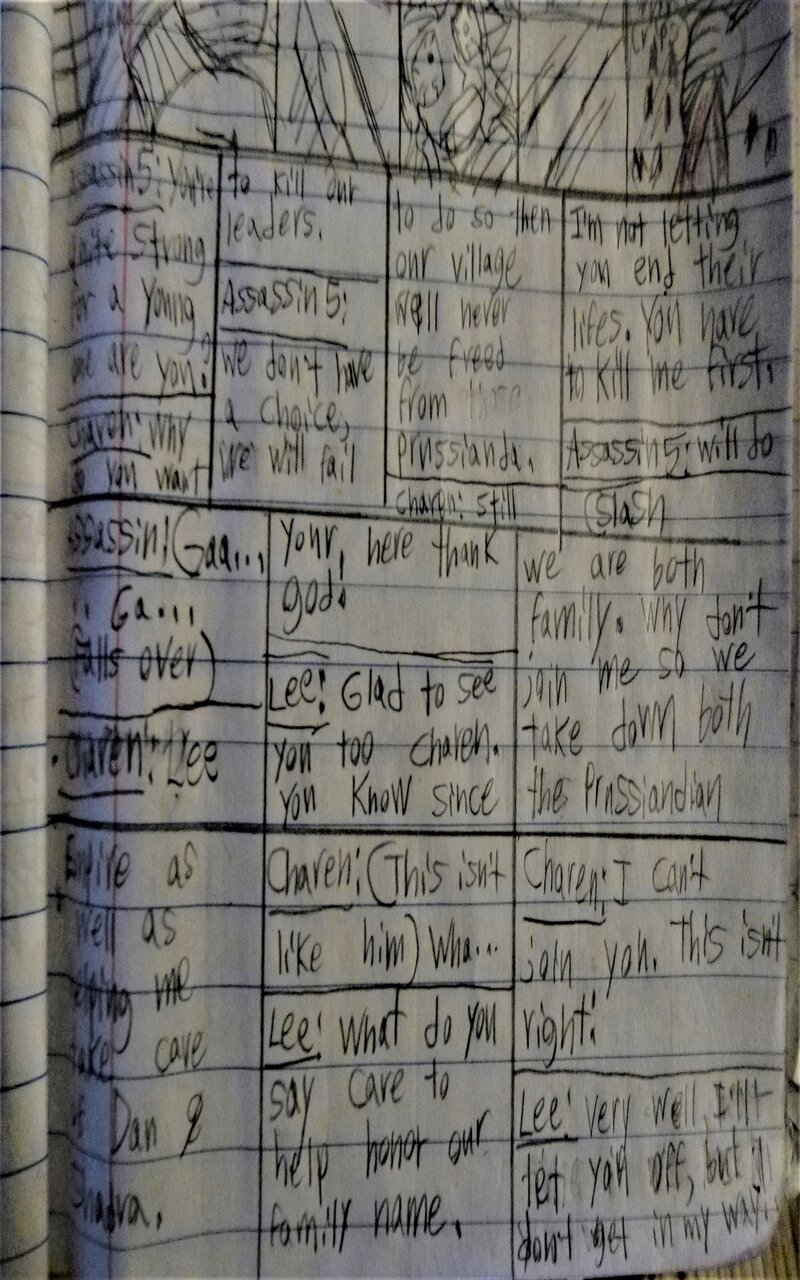 Assassin5: You're
quite strong
for a young
one are you?
Charen: Why
do you want
to kill our
leaders.
Assassin5:
we don't have
a choice,
we will fail
to do so then
our village
well never
be freed
from
Prussianda.
Charen: still
I'm not letting
you end their
lifes. You have
to kill me first.
Assassin5: will do
(slash
Assassin: Gaa...
.. Ga...
(falls over)
Charen: Lee
Your, here thank
god!
Lee: Glad to see
you too Charen.
You know since
we are both
family. Why don't
join me so we
take down both
the Prussiandian
Empire as
well as
helping me
take care
of Dan &
Charen: (This isn't
like him) Wha...
Lee: What do you
say care to
help honor our
family name.
Charen: I can't
join you. This isn't
right!
Lee: very well I'll
let you off, but
don't get in my way.